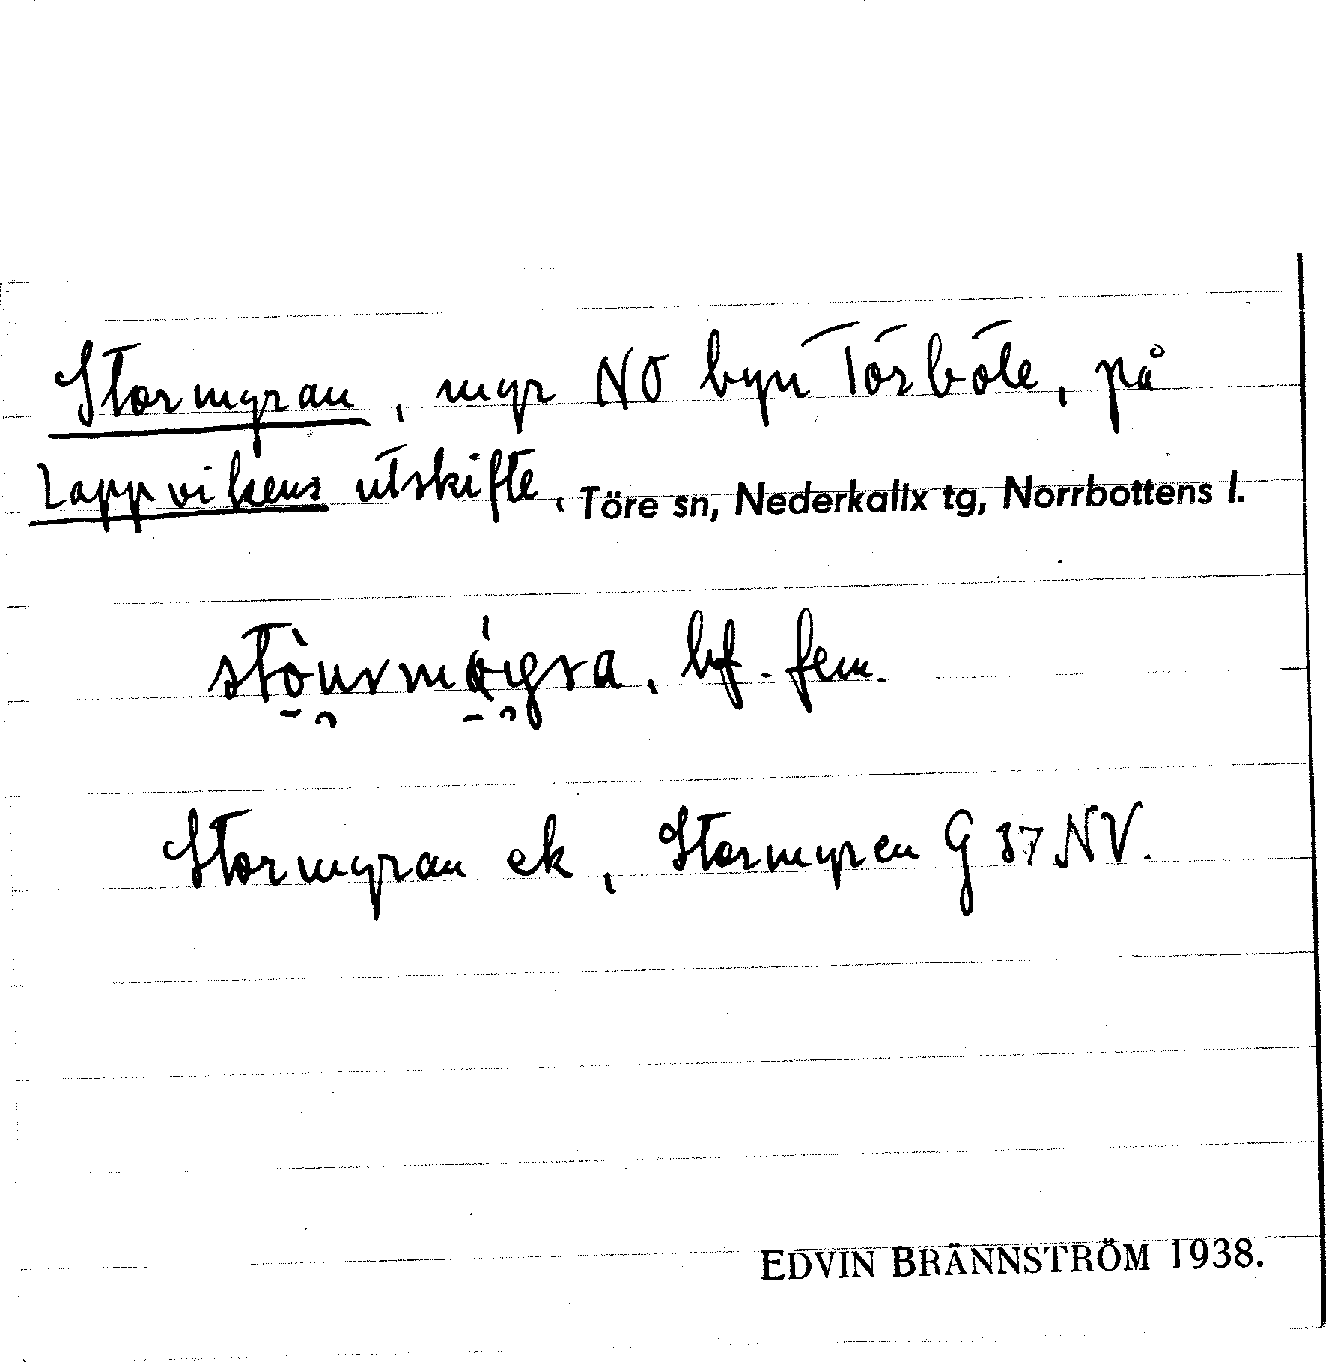 Stormyran, myr NO byn Törböle, på
Lappvikens utskifte, Töre sn, Nederkalix tg, Norrbottens l.
bf. fem.
Stormyran ek, Stormyren G 37 NV.
EDVIN BRÄNNSTRÖM 1938.